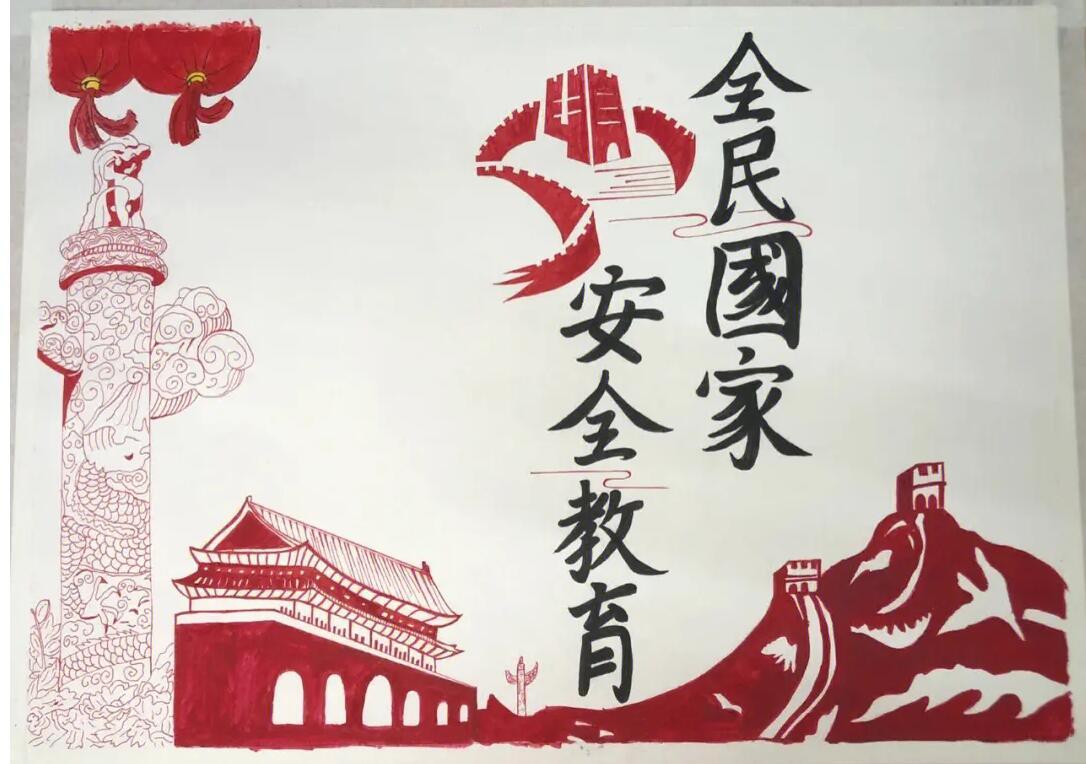 全民國家
安全教育